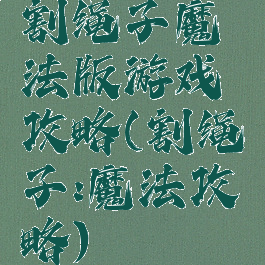 割绳子魔
法版游戏
攻略(割绳
子:魔法攻
略)